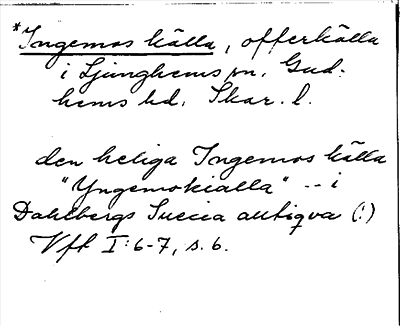 *Ingemos källa, offerkälla
i Ljunghems sn. Gud-
hems hd. Skar. l.
den heliga Ingemos källa
"Yngemokialla" -- i
Dahlbergs Suecia antiqva (!)
Vft I:6-7, s. 6.